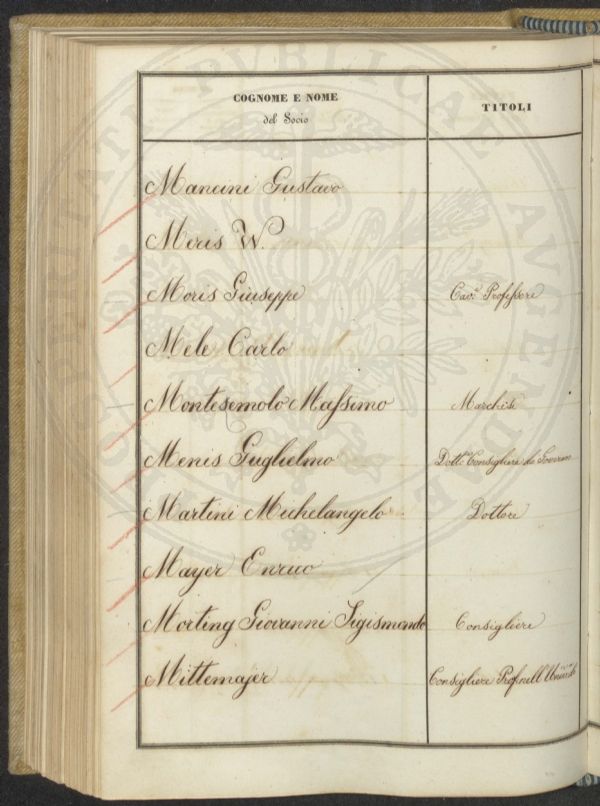 COGNOME E NOME
del Socio
TITOLI
Mancini Gustavo
Meris W.
Moris Giuseppe Cav.e Professore
Mele Carlo
Montesemolo Massimo Marchese
Menis Guglielmo Dott. Consigliere di Governo
Martini Michelangelo Dottore
Mayer Enrico
Morting Giovanni Sigismondo Consigliere
Mittemajer Consigliere Prof.